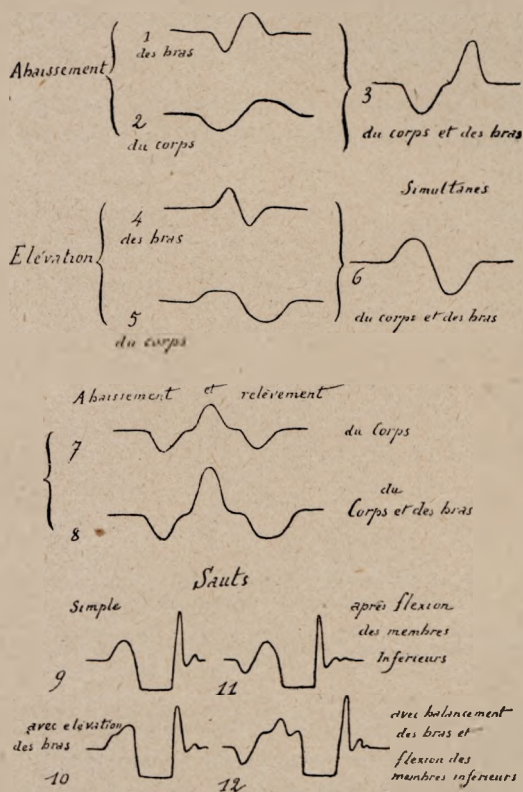 Abaissement
1
des bras
2
du corps
3
du corps et des bras
Simultanés
Elévation
4
des bras
5
du corps
6
du corps et des bras
Abaissement et relèvement
7
du Corps
8
du
Corps et des bras
Sauts
Simple
9
après flexion
des membres
Inférieurs
11
avec elévation
des bras
10
avec balancement
des bras et
flexion des
membres inférieurs
12